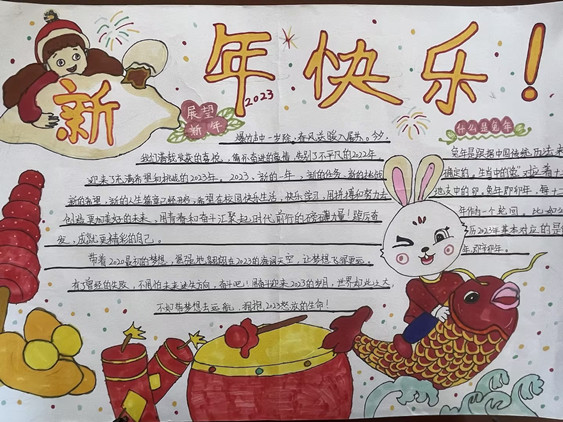 新年快乐!
2023
展望
新年
什么是兔年
爆竹声中一岁除,春风送暖入屠苏。今夕,
我们满载
的喜悦,
奋进的豪情,告别了不平凡的2022年
迎来了充满希望和挑战的2023年。2023,新的一年,新的任务,新的挑战
新的希望,新的人生篇章已经开始,希望在校园快乐生活,快乐学习,用拼搏和努力去
创造更加美好的未来,用青春和奋斗汇聚起时代前行的磅礴力量!
发,成就更精彩的自己。
带着2020最初的梦想,
2023在
天空,让梦想飞得更远。
有了曾经的失败,不再怕未来
方向,奋斗吧!用奋斗迎来2023的岁月,世界如此之大
不如带梦想去远航,拥抱2023怒放的生命!
兔年是跟据中国传统历法来
确定的,生肖中的“兔”对应着十二
地支中的卯,兔年即卯年,每十二
年作为一个轮回,比如公
历2023年基本对应的是
年,即卯年。